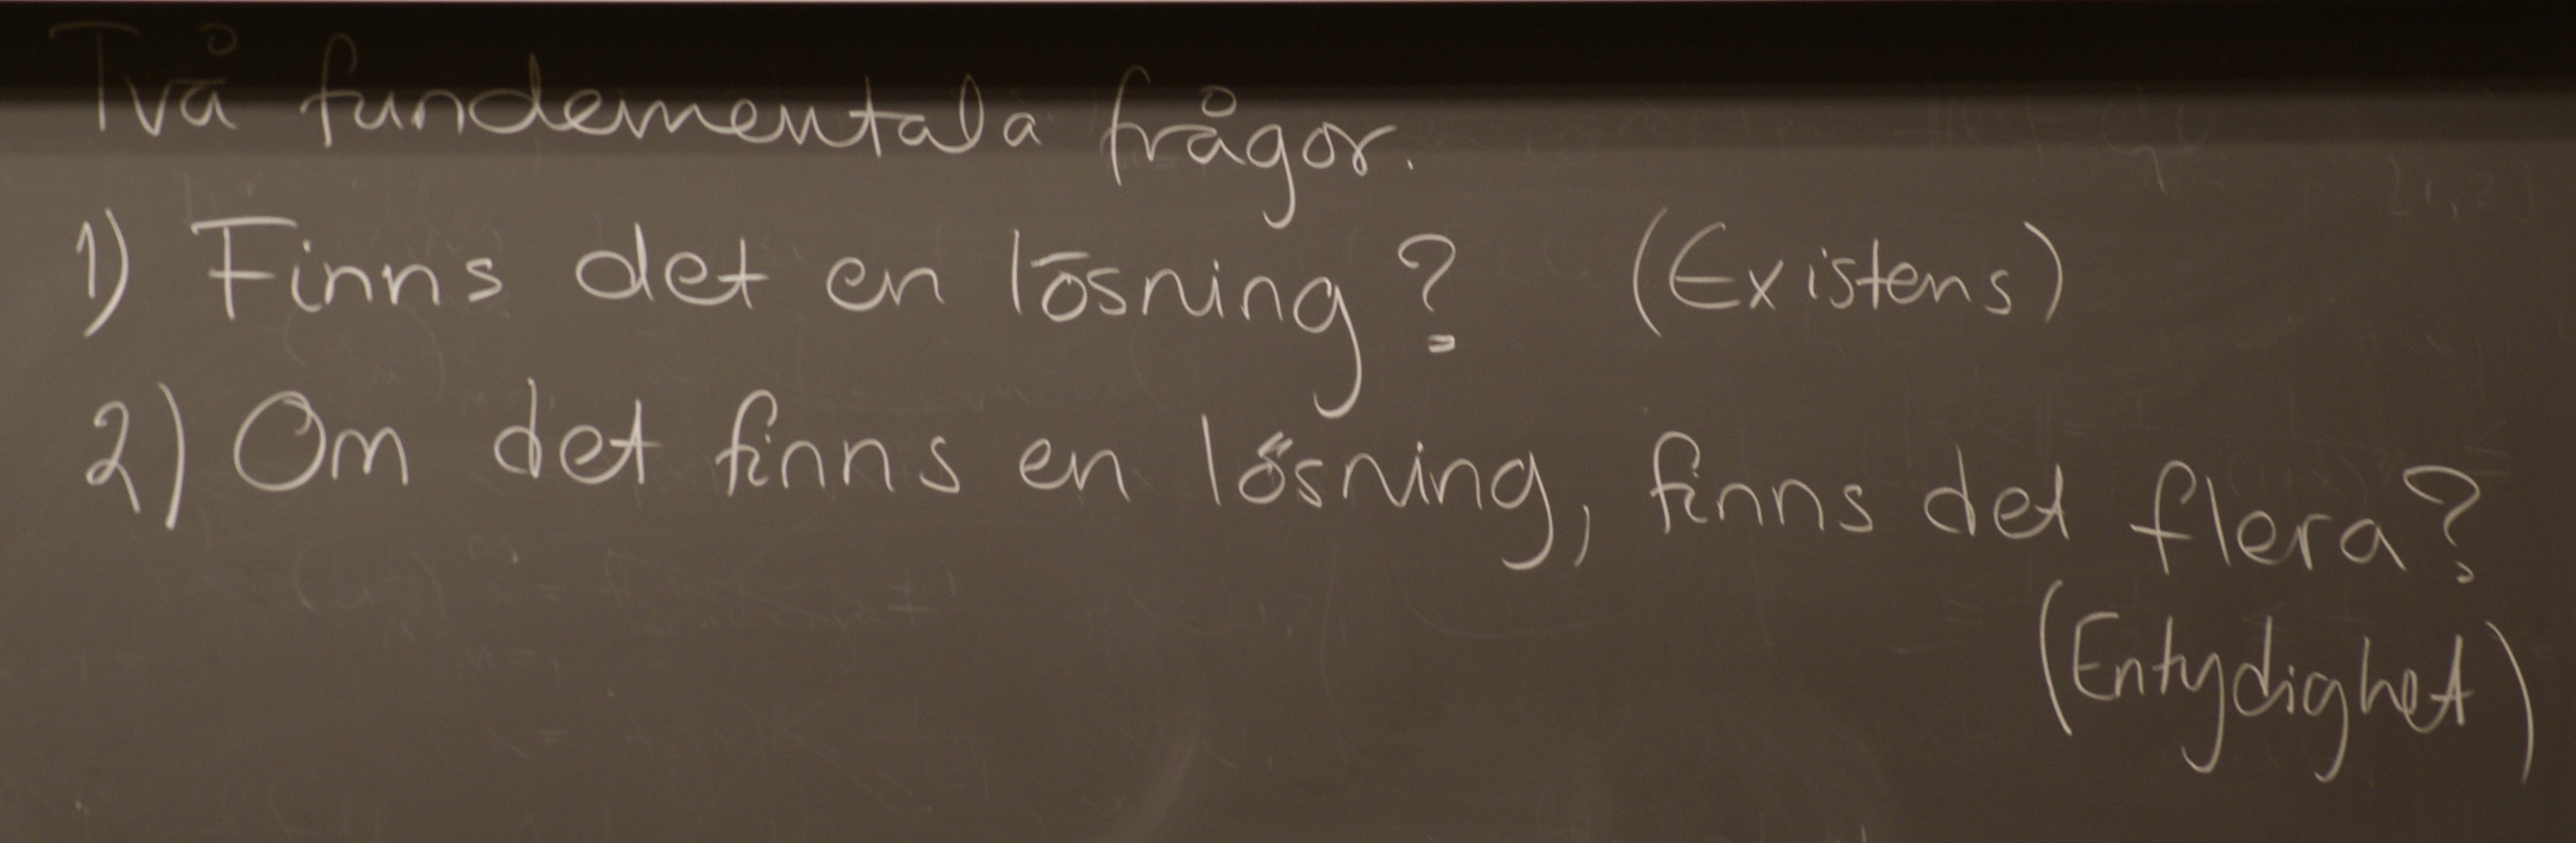 Två fundementala frågor.
1) Finns det en lösning? (Existens)
2) Om det finns en lösning, finns det flera?
(Entydighet)